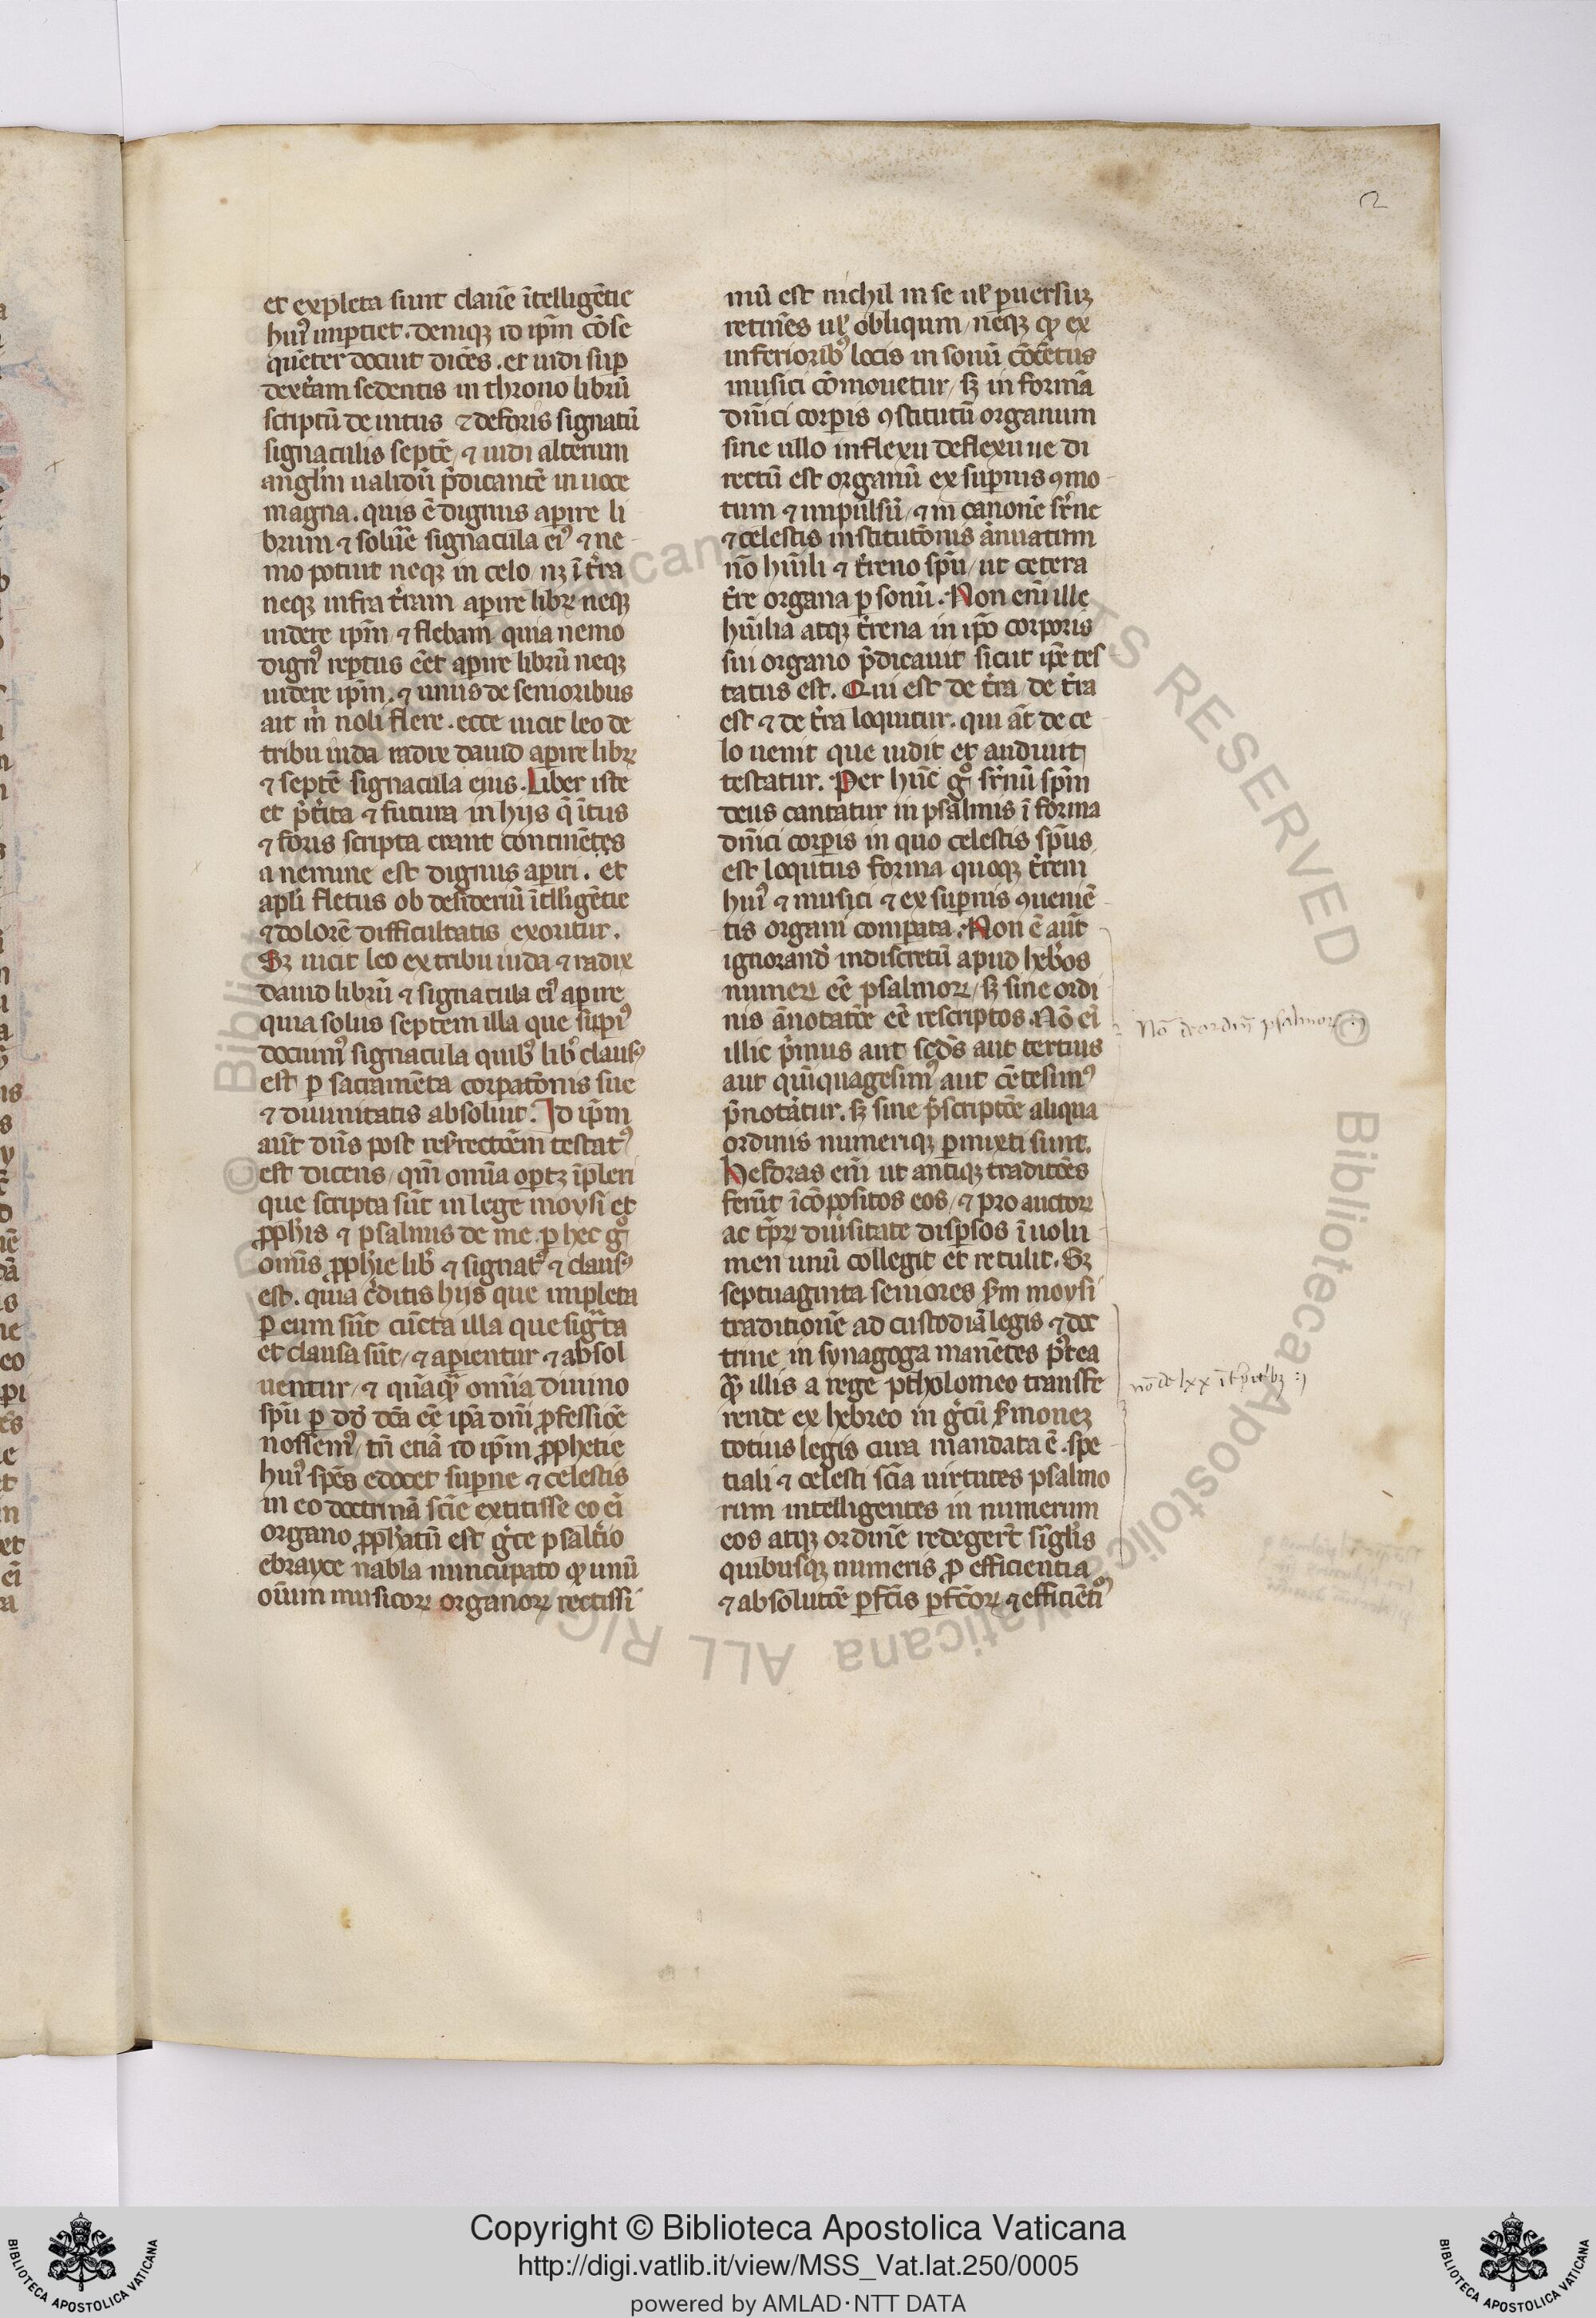 2
et expleta sunt clauē ītelligētie
huiꝰ imꝑtiet. deniqꝫ id ip̄m cōse
quēter docuit dicēs. et uidi suꝑ
dext̄am sedentis in throno librū
scriptū de intus ⁊ deforis signatū
signaculis septē / ⁊ uidi alterum
angl̄m ualidū p̄dicantē in uoce
magna. quis ē dignus aꝑire li
brum ⁊ soluē signacula eiꝰ ⁊ ne
mo potuit neqꝫ in celo / nꝫ ī t̄ra
neqꝫ infra t̄ram aꝑire libꝝ neqꝫ
uidere ip̄m / ⁊ flebam quia nemo
dignꝰ reptus eēt aꝑire librū neqꝫ
uidere ip̄m. ⁊ unus de senioribus
ait m̄ noli flere. ecce uicit leo de
tribu iuda radix dauid aꝑire libꝝ
⁊ septē signacula eius. Liber iste
et p̄t̄ita ⁊ futura in hijs q̄ ītus
⁊ foris scripta erant continētes
a nemine est dignus aꝑiri. et
apl̄i fletus ob desideriū ītelligētie
⁊ dolorē difficultatis exoritur.
Sꝫ uicit leo ex tribu iuda ⁊ radix
dauid librū ⁊ signacula eiꝰ aꝑire
quia solus septem illa que suꝑiꝰ
docuimꝰ signacula quibꝰ lib̄ clausꝰ
est ꝑ sacramēta corpatōnis sue
⁊ diuinitatis absoluit. Id ip̄m
aūt dn̄s post resrectōem testatꝰ
est dicens / qm̄ omīa oportꝫ īpleri
que scripta sūt in lege moysi et
ꝓph̄is ⁊ psalmis de me. ꝑ hec gͦ
omīs ꝓph̄ie lib̄ ⁊ signatꝰ ⁊ clausꝰ
est. quia c̄ditis hijs que impleta
ꝑ eum sūt cūcta illa que sigͣta
et clausa sūt / ⁊ aꝑientur ⁊ absol
uentur / ⁊ quāqͣꝫ omīa diuino
sp̄u ꝑ dd̄ dc̄a eē ipā dn̄i ꝓfessiōe
nossemꝰ / tn̄ etiā id ip̄m ꝓphetie
huiꝰ spēs edocet suꝑne ⁊ celestis
in eo doctrinā scīe extitisse eo ei̅
organo ꝓph̄atū est gr̄ce psalt̄io
ebrayce nabla nuncupato qꝫ unū
oīum musicoꝝ organoꝝ rectissi
mū est nichil in se ul̄ ꝑuersuꝫ
retinēs ul̄ obliqum / neqꝫ qꝫ ex
inferioribꝰ locis in sonū cōcētus
musici cōmouetur / sꝫ in formā
dn̄ici corꝑis ꝯstitutū organum
sine ullo inflexu deflexuue di
rectū est organū ex suꝑnis ꝯmo
tum ⁊ impulsū / ⁊ in canonē sr̄ne
⁊ celestis institutōnis ānuatim
nō hūili ⁊ t̄reno sp̄u / ut cetera
t̄re organa ꝑ sonū. Non enī ille
hūilia atqꝫ t̄rena in ipō corporis
sui organo p̄dicauit sicut ip̄e tes
tatus est. Qui est de t̄ra / de t̄ra
est ⁊ de t̄ra loquitur. qui āt de ce
lo uenit que uidit et audiuit
testatur. Per hūc gͦ sr̄nū sp̄m
deus cantatur in psalmis ī forma
dn̄ici corꝑis in quo celestis sp̄us
est loqutus forma quoqꝫ t̄reni
huiꝰ ⁊ musici ⁊ ex suꝑnis ꝯueniē
tis organi compata. Non ē aūt
ignorand̄ indiscretū apud heb̄os
numeꝝ eē psalmoꝝ / sꝫ sine ordi
nis ānotatōe eē rescriptos. Nō ei̅
illic p̄mus aut scd̄s aut tertius
aut quīquagesimꝰ aut cētesimꝰ
p̄notātur. sꝫ sine p̄scriptōe aliqua
ordinis numeriqꝫ ꝑmixti sunt.
Hesdras enī ut antiqꝫ traditōes
ferūt īcōpositos eos / ⁊ pro auctoꝝ
ac tp̄ꝝ diu̅sitate disꝑsos ī uolu
men unū collegit et retulit. Sꝫ
septuaginta seniores sm̄ moysi
traditionē ad custodiā legis ⁊ doc
trine in synagoga manētes p̄tea
qͣꝫ illis a rege ptholomeo transfe
rende ex hebreo in gr̄cū s̄moneꝫ
totius legis cura mandata ē. spe
tiali ⁊ celesti scīa uirtutes psalmo
rum intelligentes in numerum
eos atqꝫ ordinē redegerūt singl̄is
quibusqꝫ numeris ꝓ efficientia
⁊ absolutōe ꝑfc̄is ꝑfc̄oꝝ ⁊ efficiētiꝰ
Nō de ordīe psalmoꝝ
nō de lxx īt̄p̄tibꝫ
Copyright © Biblioteca Apostolica Vaticana
http://digi.vatlib.it/view/MSS_Vat.lat.250/0005
powered by AMLAD·NTT DATA
BIBLIOTECA APOSTOLICA VATICANA
BIBLIOTECA APOSTOLICA VATICANA